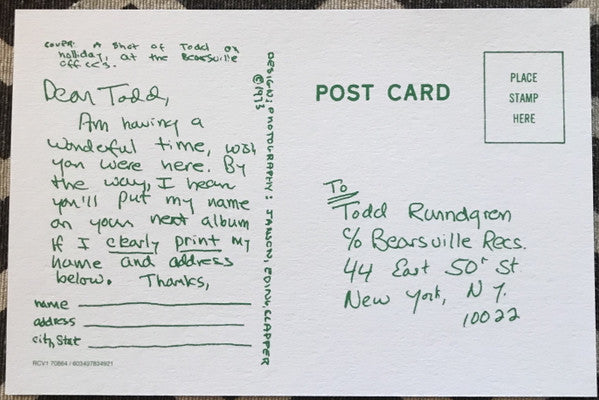 COVER: A Shot of Todd on
holliday, at the Bearsville
offices.
Dear Todd,
Am having a
wonderful time, wish
you were here. By
the way, I hear
you'll put my name
on your next album
if I clearly print my
name and address
below. Thanks,
name
address
city, Stat
RCV1 70864 / 603497834921
DESIGN; PHOTOGRAPHY: JAMSON, EDINK, CLAPPER
©1973
POST CARD
PLACE
STAMP
HERE
To
Todd Rundgren
c/o Bearsville Recs.
44 East 50' St.
New York, N.Y.
10022